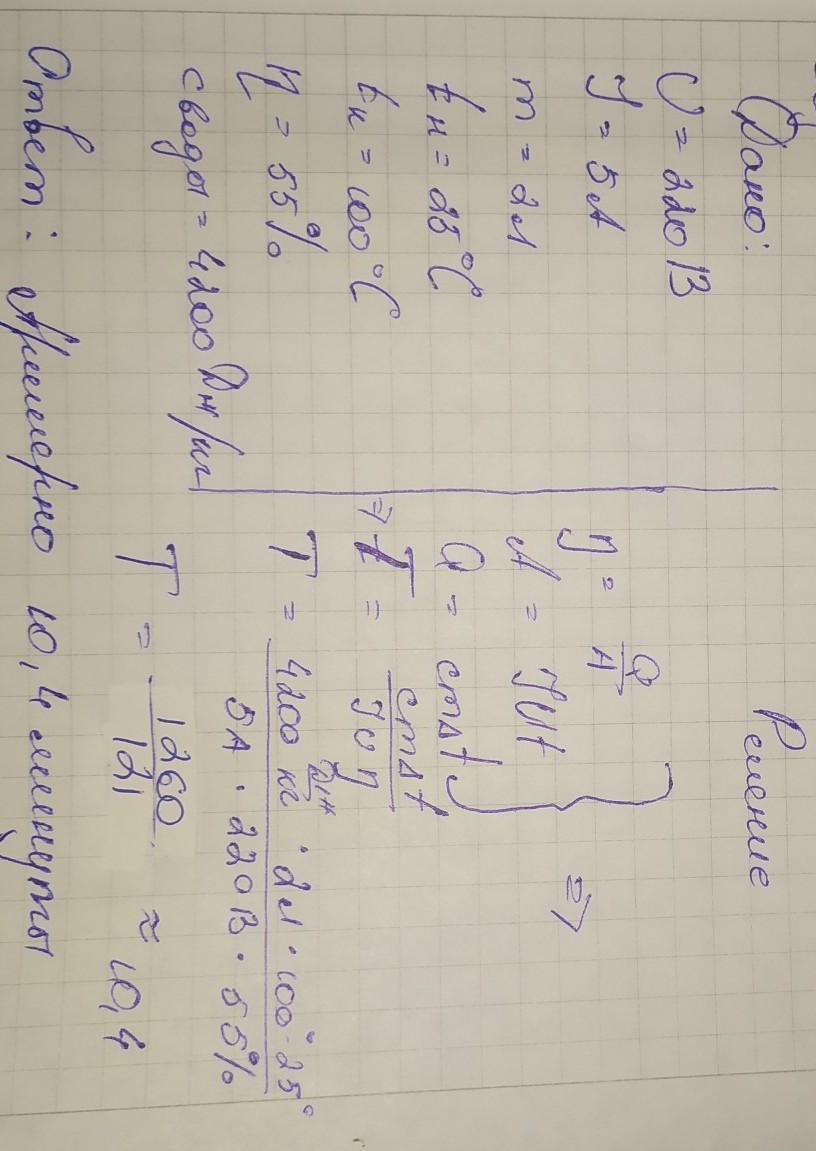 Дано:
U = 220 В
J = 5 А
m = 2 л
tн = 25°C
tк = 100°C
η = 55%
своды = 4200 Дж/кг
Решение
η = Q/A
A = JUt
Q = cmΔt
⇒
⇒ T = cmΔt / JUη
T = 4200 Дж/кг · 2л · 100°-25° / 5А · 220В · 55%
T = 1260/121 ≈ 10,4
Ответ: Примерно 10,4 минуты